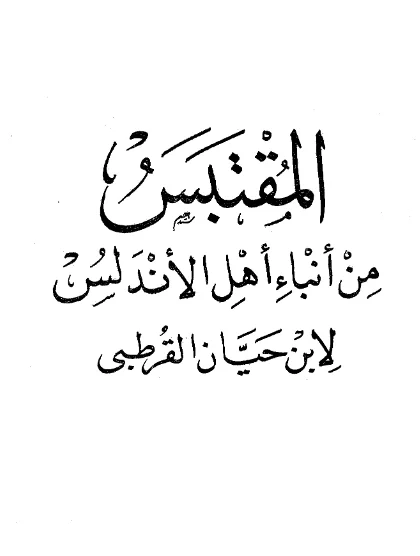 المُقْتَبَسُ
مِنْ أنْباءِ أهْلِ الأنْدَلُسْ
لِابن حَيَّان القُرطبى